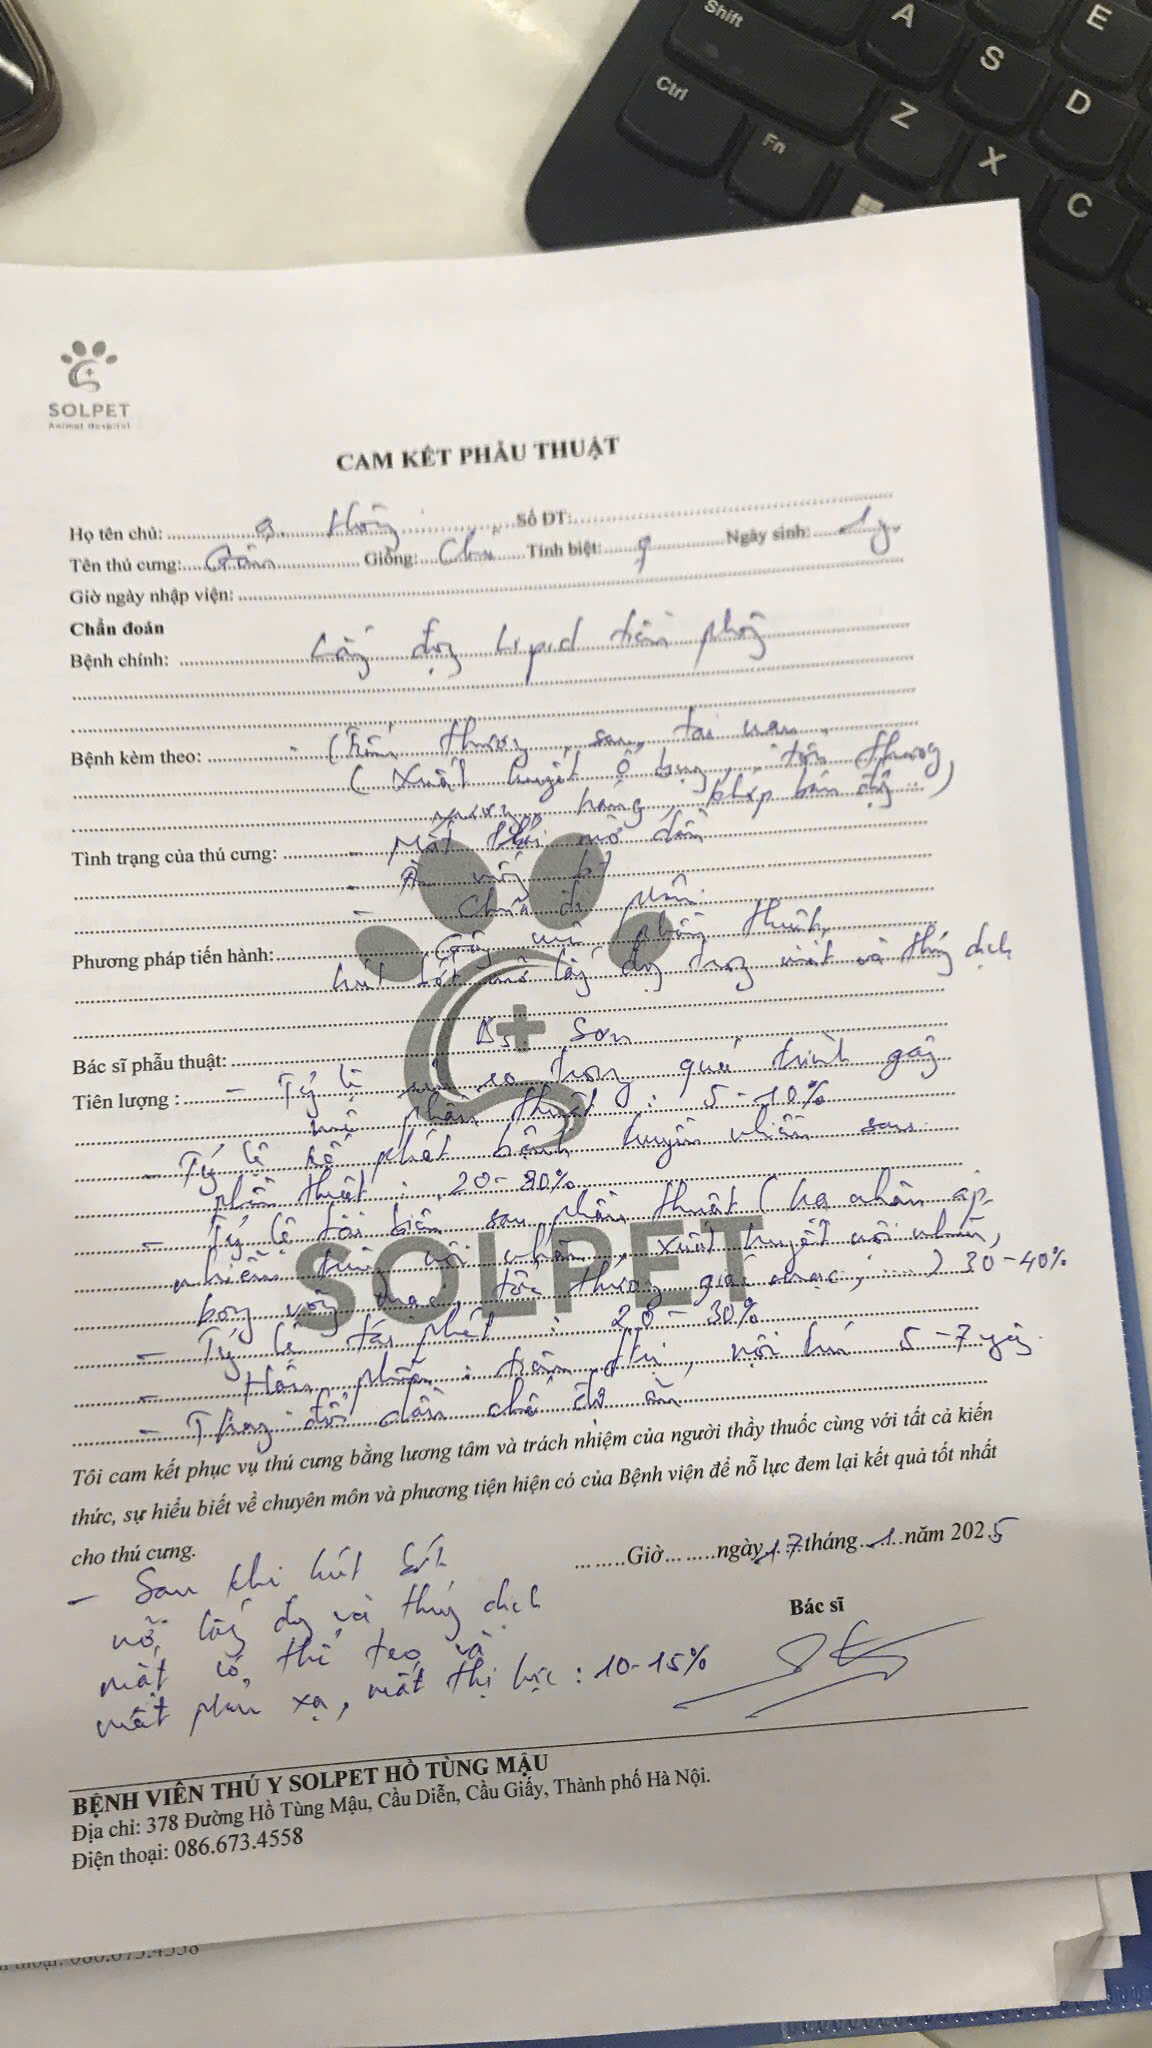 Shift
A
E
Ctrl
S
D
Z
Fn
X
C
SOLPET
Animal Hospital
CAM KẾT PHẪU THUẬT
Họ tên chủ: a. Số ĐT:
Tên thú cưng: Giống: Chó Tính biệt: ♀ Ngày sinh: 1y
Giờ ngày nhập viện:
Chẩn đoán
Bệnh chính: Lắng đọng Lipid tiền phòng
Bệnh kèm theo: thương sau tai nạn
(Xuất huyết ổ bụng, tổn thương
xương háng, khớp bán động...)
Tình trạng của thú cưng: - Mắt phải mờ dần
- Ăn uống bt
- Chưa đi phân.
Phương pháp tiến hành: Gây mê phẫu thuật,
hút bớt mỡ lắng đọng trong mắt và thủy dịch
Bác sĩ phẫu thuật: Bs Sơn
Tiên lượng : - Tỷ lệ rủi ro trong quá trình gây
mê phẫu thuật : 5-10%
- Tỷ lệ kế phát bệnh truyền nhiễm sau
phẫu thuật : 20-30%
- Tỷ lệ tai biến sau phẫu thuật (hạ nhãn áp,
nhiễm trùng nội nhãn, xuất huyết nội nhãn,
bong võng mạc, tổn thương giác mạc, ....) 30-40%
- Tỷ lệ tái phát : 20-30%
- Hậu phẫu : nội trú 5-7 ngày.
- Thay đổi dần chế độ ăn.
SOLPET
Tôi cam kết phục vụ thú cưng bằng lương tâm và trách nhiệm của người thầy thuốc cùng với tất cả kiến
thức, sự hiểu biết về chuyên môn và phương tiện hiện có của Bệnh viện để nỗ lực đem lại kết quả tốt nhất
cho thú cưng.
........Giờ........ngày 17 tháng 1 năm 2025
- Sau khi hút bớt
mỡ lắng đọng và thủy dịch
mắt có thể teo và
mất phản xạ, mất thị lực : 10-15%
Bác sĩ
BỆNH VIỆN THÚ Y SOLPET HỒ TÙNG MẬU
Địa chỉ: 378 Đường Hồ Tùng Mậu, Cầu Diễn, Cầu Giấy, Thành phố Hà Nội.
Điện thoại: 086.673.4558
thoại: 086.673.4558